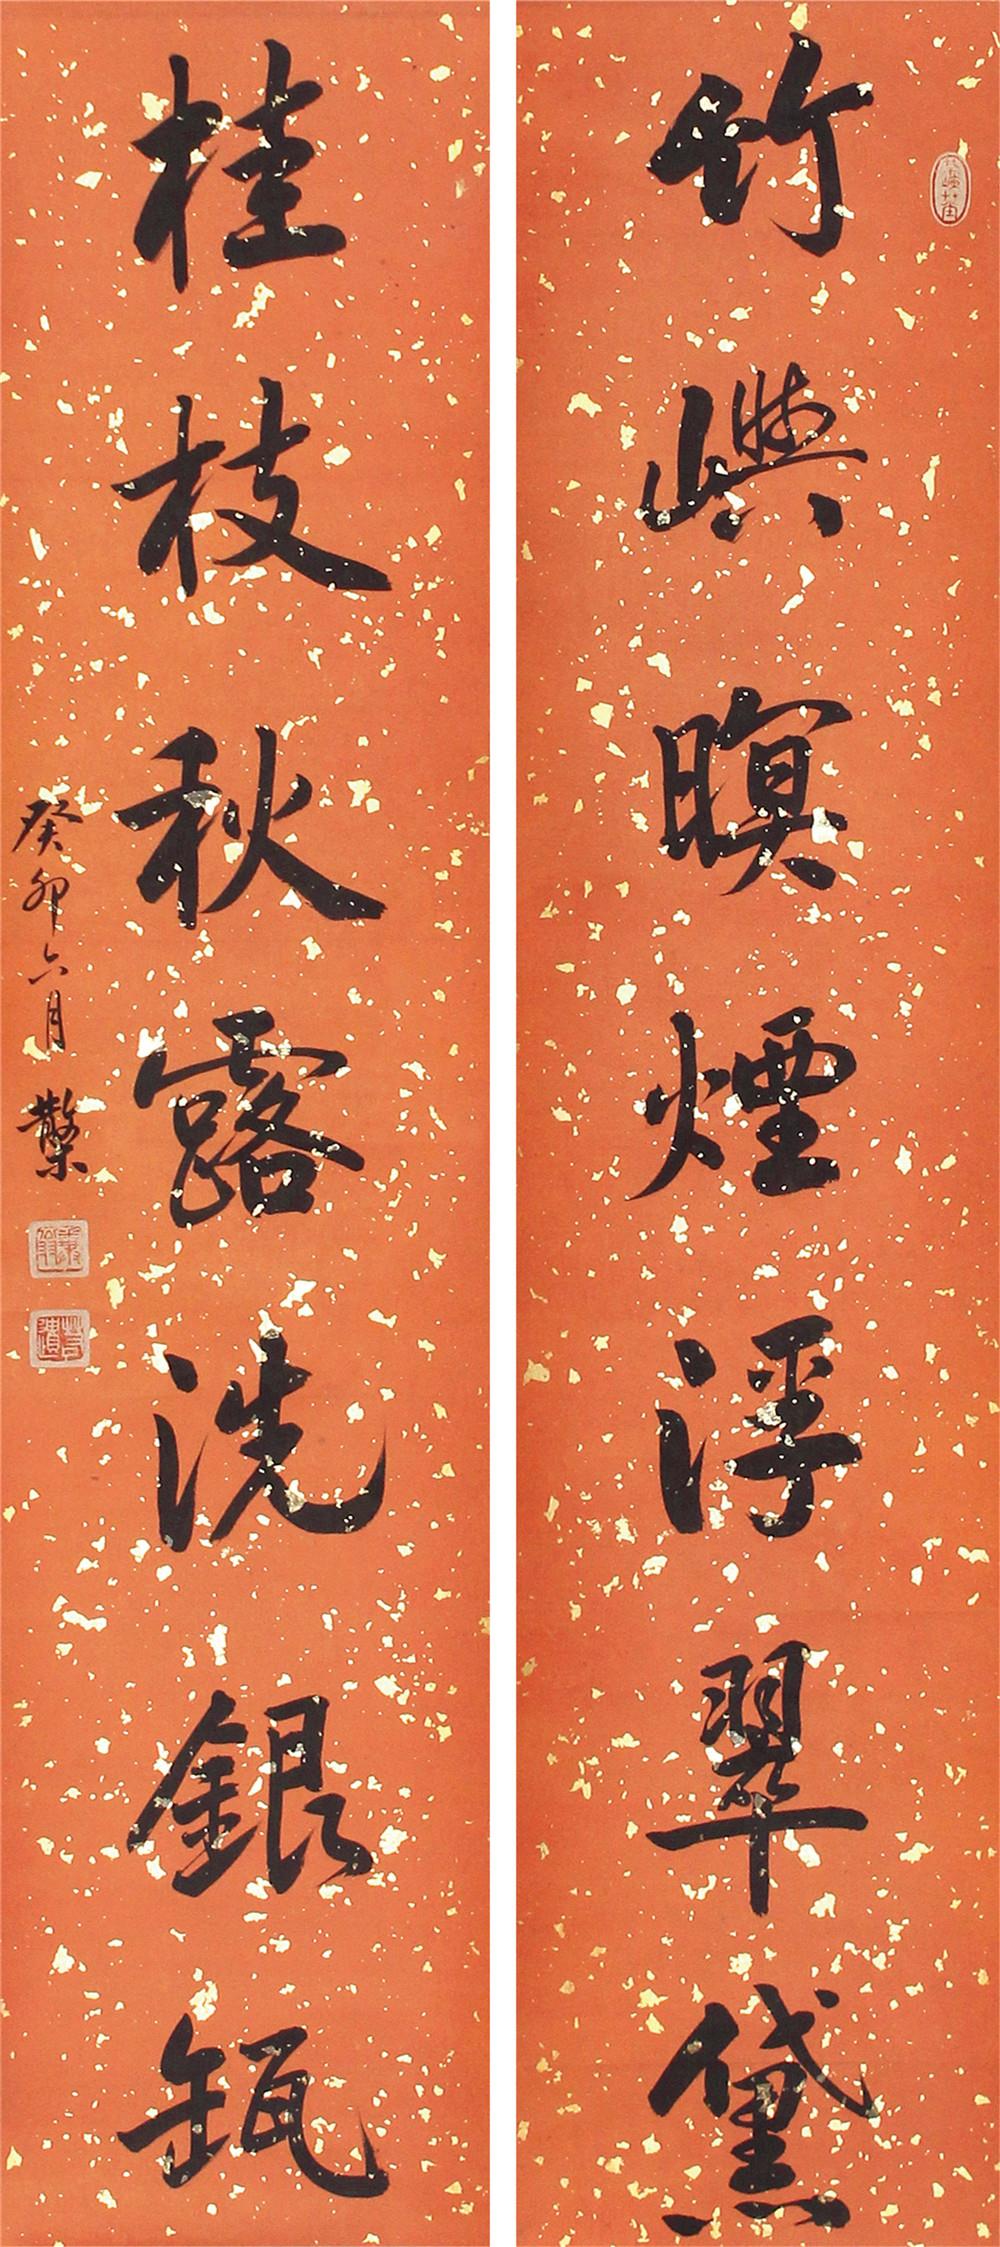 竹嶼暝煙浮翠黛
桂枝秋露洗銀瓶
癸卯六月